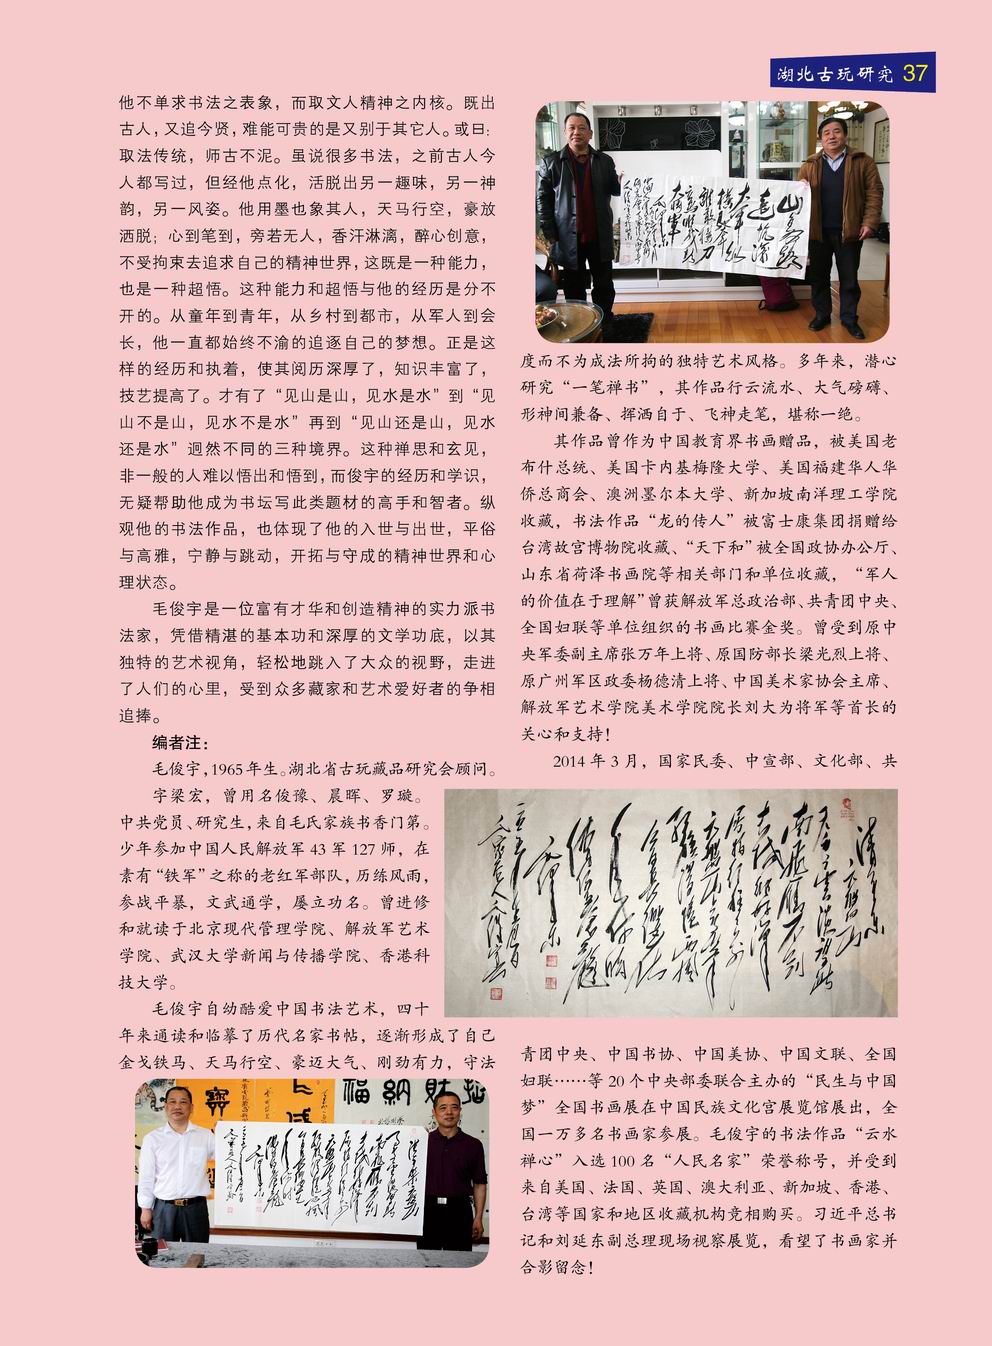 湖北古玩研究 37
他不单求书法之表象，而取文人精神之内核。既出
古人，又追今贤，难能可贵的是又别于其它人。或曰：
取法传统，师古不泥。虽说很多书法，之前古人今
人都写过，但经他点化，活脱出另一趣味，另一神
韵，另一风姿。他用墨也象其人，天马行空，豪放
洒脱；心到笔到，旁若无人，香汗淋漓，醉心创意，
不受拘束去追求自己的精神世界，这既是一种能力，
也是一种超悟。这种能力和超悟与他的经历是分不
开的。从童年到青年，从乡村到都市，从军人到会
长，他一直都始终不渝的追逐自己的梦想。正是这
样的经历和执着，使其阅历深厚了，知识丰富了，
技艺提高了。才有了“见山是山，见水是水”到“见
山不是山，见水不是水”再到“见山还是山，见水
还是水”迥然不同的三种境界。这种禅思和玄见，
非一般的人难以悟出和悟到，而俊宇的经历和学识，
无疑帮助他成为书坛写此类题材的高手和智者。纵
观他的书法作品，也体现了他的入世与出世，平俗
与高雅，宁静与跳动，开拓与守成的精神世界和心
理状态。
毛俊宇是一位富有才华和创造精神的实力派书
法家，凭借精湛的基本功和深厚的文学功底，以其
独特的艺术视角，轻松地跳入了大众的视野，走进
了人们的心里，受到众多藏家和艺术爱好者的争相
追捧。
编者注：
毛俊宇，1965年生。湖北省古玩藏品研究会顾问。
字梁宏，曾用名俊豫、晨晖、罗璇。
中共党员、研究生，来自毛氏家族书香门第。
少年参加中国人民解放军 43 军 127 师，在
素有“铁军”之称的老红军部队，历练风雨，
参战平暴，文武通学，屡立功名。曾进修
和就读于北京现代管理学院、解放军艺术
学院、武汉大学新闻与传播学院、香港科
技大学。
毛俊宇自幼酷爱中国书法艺术，四十
年来通读和临摹了历代名家书帖，逐渐形成了自己
金戈铁马、天马行空、豪迈大气、刚劲有力，守法
度而不为成法所拘的独特艺术风格。多年来，潜心
研究“一笔禅书”，其作品行云流水、大气磅礴、
形神间兼备、挥洒自于、飞神走笔，堪称一绝。
其作品曾作为中国教育界书画赠品，被美国老
布什总统、美国卡内基梅隆大学、美国福建华人华
侨总商会、澳洲墨尔本大学、新加坡南洋理工学院
收藏，书法作品“龙的传人”被富士康集团捐赠给
台湾故宫博物院收藏、“天下和”被全国政协办公厅、
山东省荷泽书画院等相关部门和单位收藏，“军人
的价值在于理解”曾获解放军总政治部、共青团中央、
全国妇联等单位组织的书画比赛金奖。曾受到原中
央军委副主席张万年上将、原国防部长梁光烈上将、
原广州军区政委杨德清上将、中国美术家协会主席、
解放军艺术学院美术学院院长刘大为将军等首长的
关心和支持！
2014 年 3 月，国家民委、中宣部、文化部、共
青团中央、中国书协、中国美协、中国文联、全国
妇联……等 20 个中央部委联合主办的“民生与中国
梦”全国书画展在中国民族文化宫展览馆展出，全
国一万多名书画家参展。毛俊宇的书法作品“云水
禅心”入选 100 名“人民名家”荣誉称号，并受到
来自美国、法国、英国、澳大利亚、新加坡、香港、
台湾等国家和地区收藏机构竞相购买。习近平总书
记和刘延东副总理现场视察展览，看望了书画家并
合影留念！
福納財招